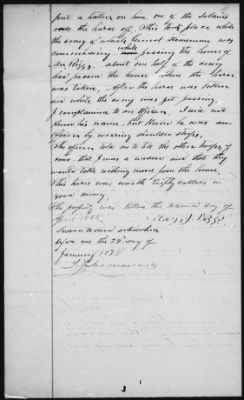 put a halter on him, one of the soldiers
rode the horse off. This took place while
the army of which General Stoneman was
commanding while was passing the house of
Mr Biggs. about one half of the army
had passed the house when the horse
was taken. After the horse was taken
and while the army was yet passing
I complained to an officer. I did not
know his name. but I know he was an
officer by wearing shoulder straps,
The officer told me to tell the other troops if
come that I was a widow and that they
would take nothing more from the house.
This horse was worth Eighty dollars in
good money
The property was taken the day of
April 1865
Sworn to and subscribed
before me the 28 day of
January 1878